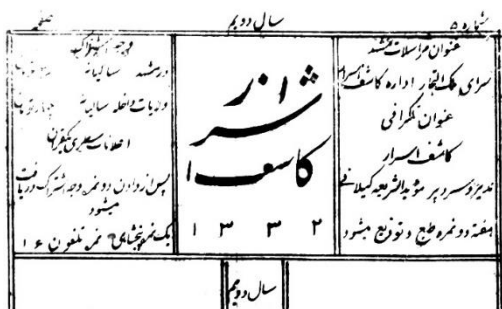 شماره ۵
سال دویم
صفحه
عنوان مراسلات مشهد
سرای ملک التجار اداره کاشف اسرار
عنوان تلگرافی
کاشف اسرار
مدیر و سردبیر مؤید الشریعه گیلانی
هفته دو نمره طبع و توزیع میشود
کاشف اسرار
۱۳۳۲
وجه اشتراک
در مشهد سالیانه
ولایات داخله سالیانه چهار تومان
اعلانات سطری یکقران
پس از دادن دو نمره وجه اشتراک دریافت
میشود
یک نمره نمره تلفون ۱۶
سال دویم